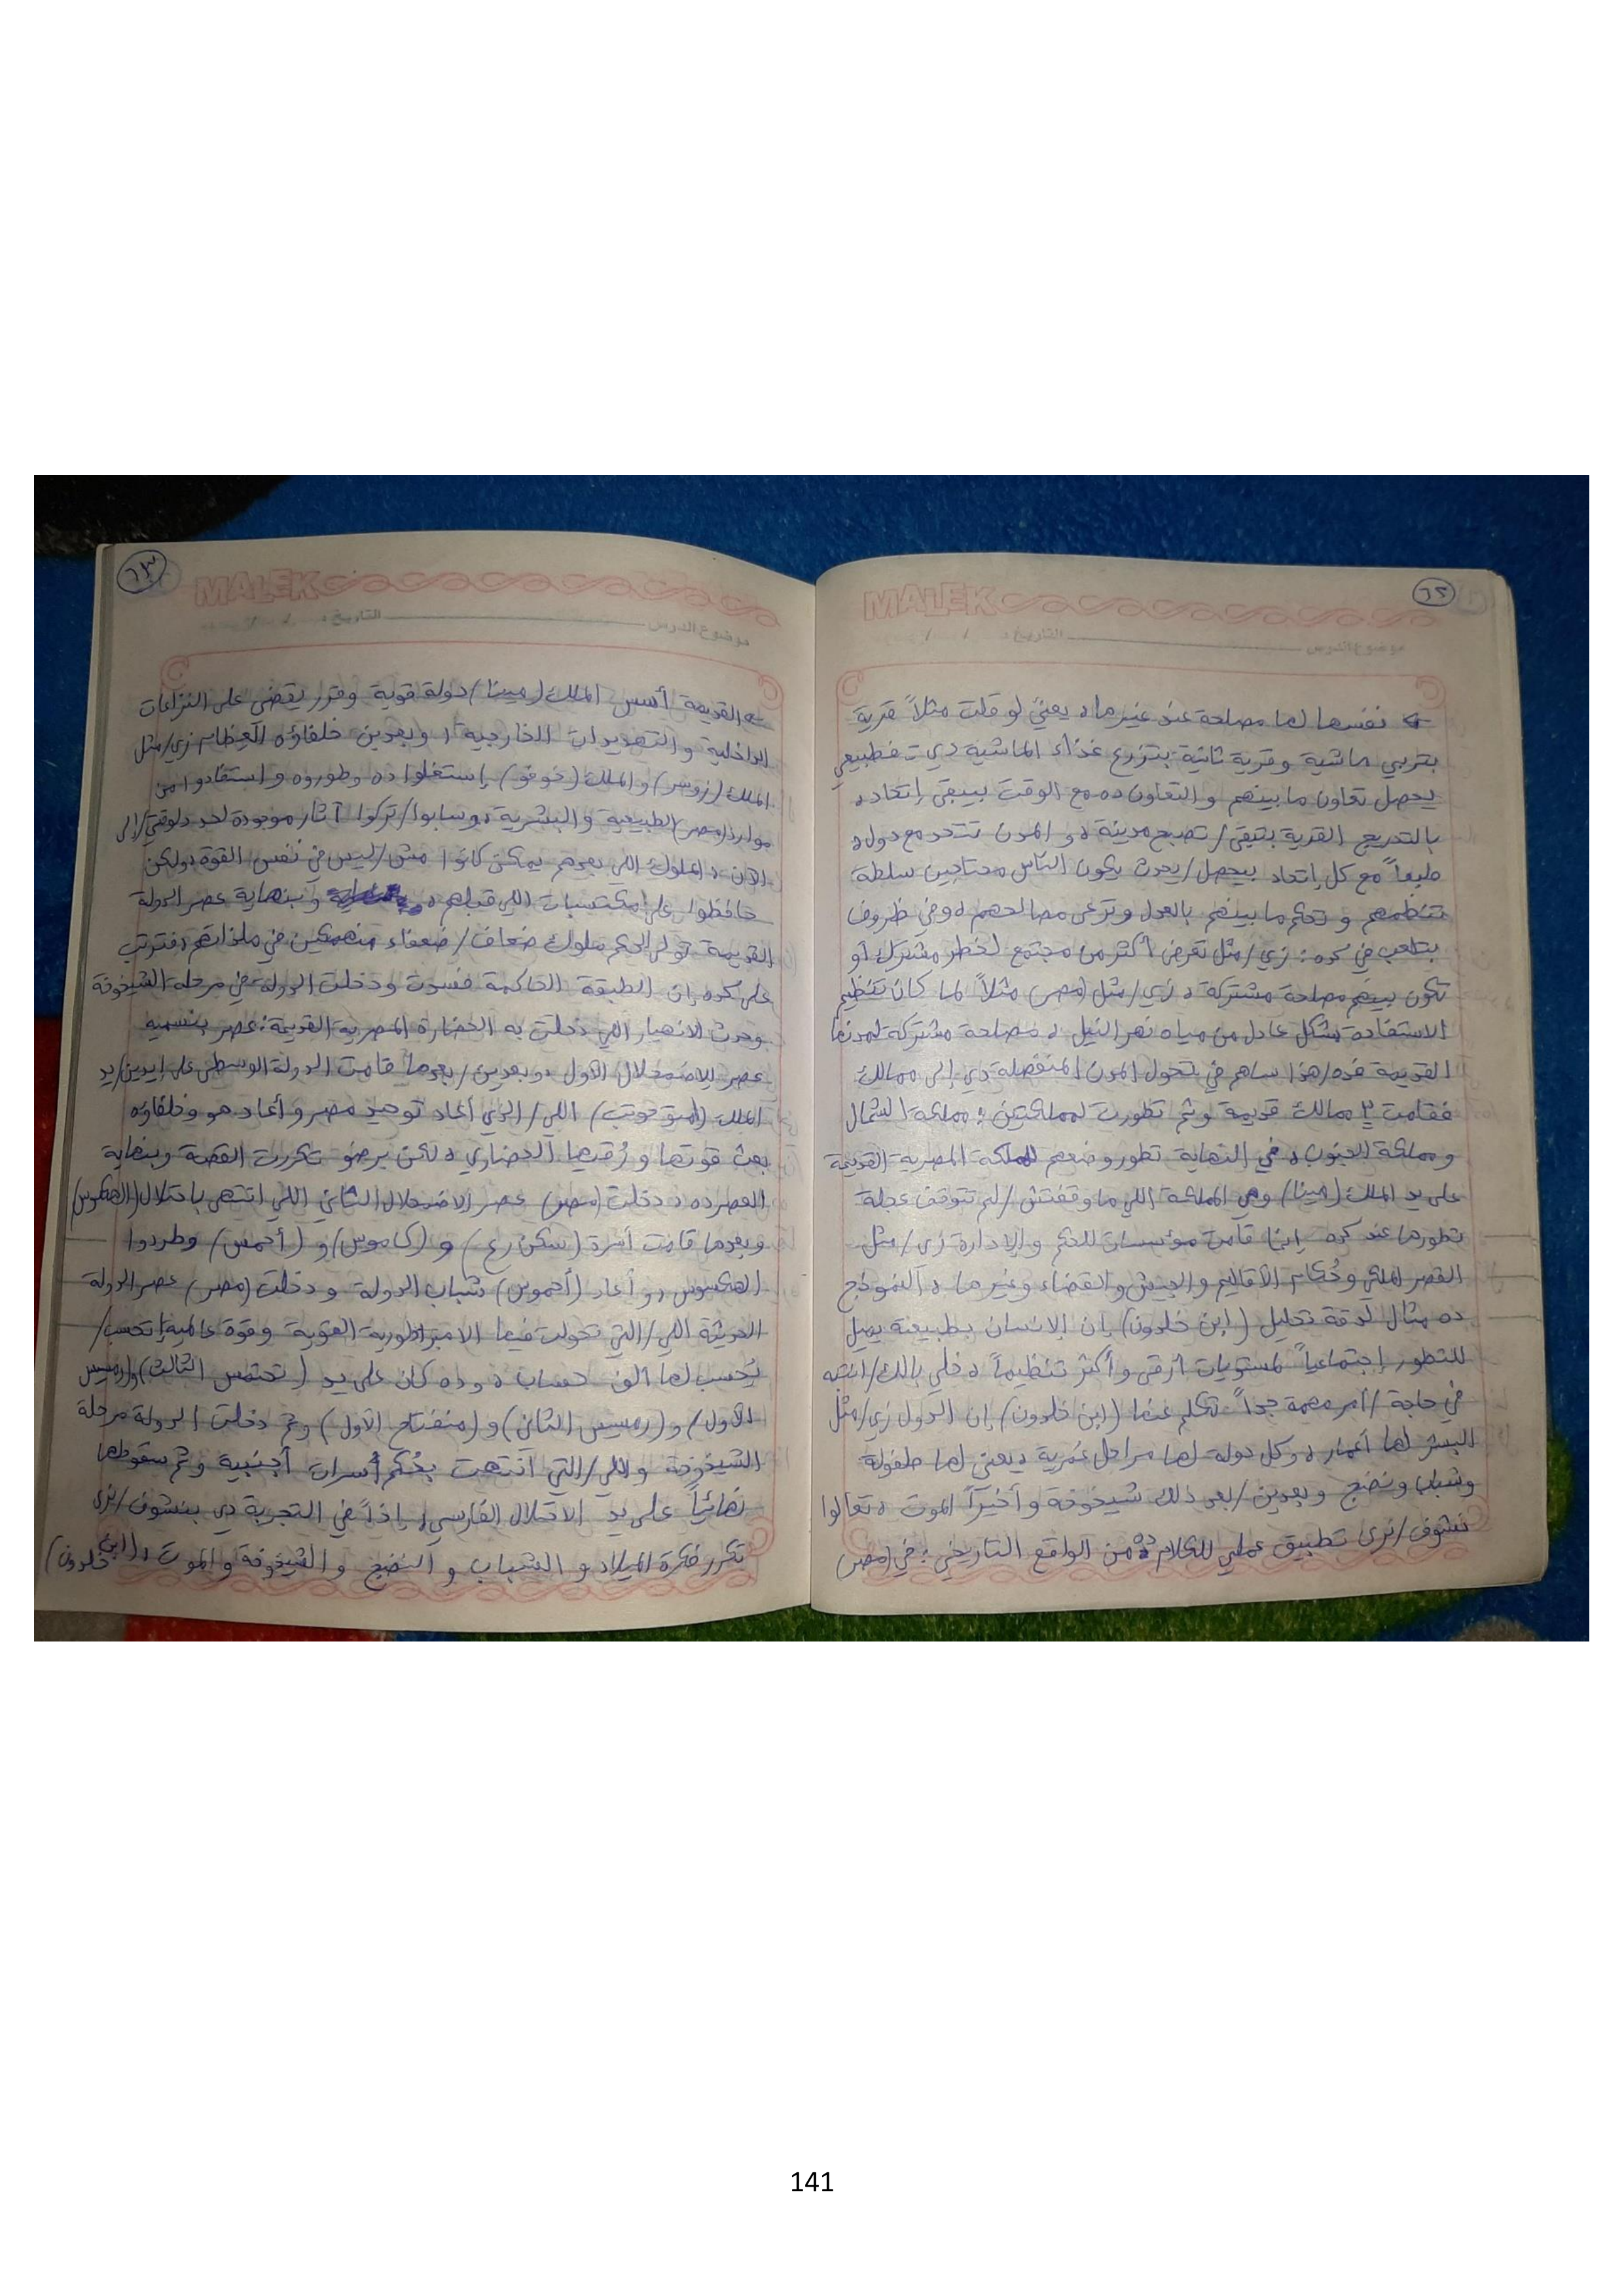 ٦٢
MALEK
موضوع الدرس التاريخ: / /
نفسها لها مصلحة عند غيرها، يعني لو قلت مثلاً قرية
بتربي ماشية وقرية ثانية بتزرع غذاء الماشية دي - فطبيعي
يحصل تعاون ما بينهم والتعاون ده مع الوقت بيبقى إتحاد،
بالتدريج القرية بتبقى/تصبح مدينة، والمدن تتحد مع دولة،
طبعاً مع كل إتحاد بيحصل/يحدث يكون الناس محتاجين سلطة
تنظمهم وتحكم ما بينهم بالعدل وترعى مصالحهم، وفي ظروف
بتلعب في كده: زي/مثل تعرض أكثر من مجتمع لخطر مشترك أو
تكون بينهم مصلحة مشتركة، زي/مثل (مصر) مثلاً لما كان تنظيم
الاستفادة بشكل عادل من مياه نهر النيل، مصلحة مشتركة لمدنها
القديمة فده/هذا ساهم في تحول المدن المنفصلة دي إلى ممالك
فقامت ٣ ممالك قديمة وثم تطورت لمملكتين: مملكة الشمال
ومملكة الجنوب، في النهاية تطور وضعهم للمملكة المصرية القديمة
على يد الملك (مينا) وهي المملكة اللي ما وقفتش/لم تتوقف عجلة
تطورها عند كده إنما قامت مؤسسات للحكم والإدارة زي/مثل
القصر الملكي وحُكام الأقاليم والجيش والقضاء وغيرها، النموذج
ده مثال لدقة تحليل (ابن خلدون) بان الانسان بطبيعته يميل
للتطور إجتماعياً لمستويات أرقى وأكثر تنظيماً، خلي بالك/انتبه
في حاجة/أمر مهمة جداً تكلم عنها (ابن خلدون) إن الدول زي/مثل
البشر لها أعمار، وكل دولة لها مراحل عُمرية، يعني لها طفولة
وشباب ونضج وبعدين/بعد ذلك شيخوخة وأخيراً الموت، تعالوا
نشوف/نرى تطبيق عملي للكلام ده من الواقع التاريخي: في (مصر)
٦٣
MALEK
موضوع الدرس التاريخ: / /
القديمة أسس الملك (مينا) دولة قوية وقرر يقضي على النزاعات
الداخلية والتهديدات الخارجية، وبعدين خلفاؤه العظام زي/مثل
الملك (زوسر) والملك (خوفو) إستغلوا ده وطوروه واستفادوا من
موارد (مصر) الطبيعية والبشرية، وسابوا/تركوا آثار موجودة لحد دلوقتي/إلى
الآن، الملوك اللي بعدهم يمكن كانوا مش/ليس في نفس القوة، ولكن
حافظوا على مكتسبات اللي قبلهم، وبنهاية عصر الدولة
القديمة تولى الحكم ملوك ضعاف/ضعفاء منهمكين في ملذاتهم، فترتب
على كده إن الطبقة الحاكمة فسدت ودخلت الدولة في مرحلة الشيخوخة
وحدث الانهيار اللي دخلت به الحضارة المصرية القديمة: عصر بنسميه
عصر الاضمحلال الأول، وبعدين/بعدها قامت الدولة الوسطى على إيدين/يد
الملك (منتوحوتب) اللي/الذي أعاد توحيد مصر وأعاد هو وخلفاؤه
بعث قوتها ورُقيها الحضاري، لكن برضو تكررت القصة وبنهاية
العصر ده، دخلت (مصر) عصر الاضمحلال الثاني اللي انتهى باحتلال (الهكسوس)
وبعدها قامت أسرة (سكن رع) و (كاموس) و (أحمس) وطردوا
الهكسوس، وأعاد (أحموس) شباب الدولة ودخلت (مصر) عصر الدولة
الحديثة اللي/التي تحولت فيها الامبراطورية القوية وقوة عالمية إتحسب/
يُحسب لها ألف حساب، وده كان على يد (تحتمس الثالث) و(رمسيس
الأول) و (رمسيس الثاني) و (منفتاح الأول) وثم دخلت الدولة مرحلة
الشيخوخة واللي/التي انتهت بحُكم أسرات أجنبية وثم سقوطها
نهائياً على يد الاحتلال الفارسي، إذاً في التجربة دي بنشوف/نرى
تكرر فكرة الميلاد والشباب والنضج والشيخوخة والموت، (ابن خلدون)
141